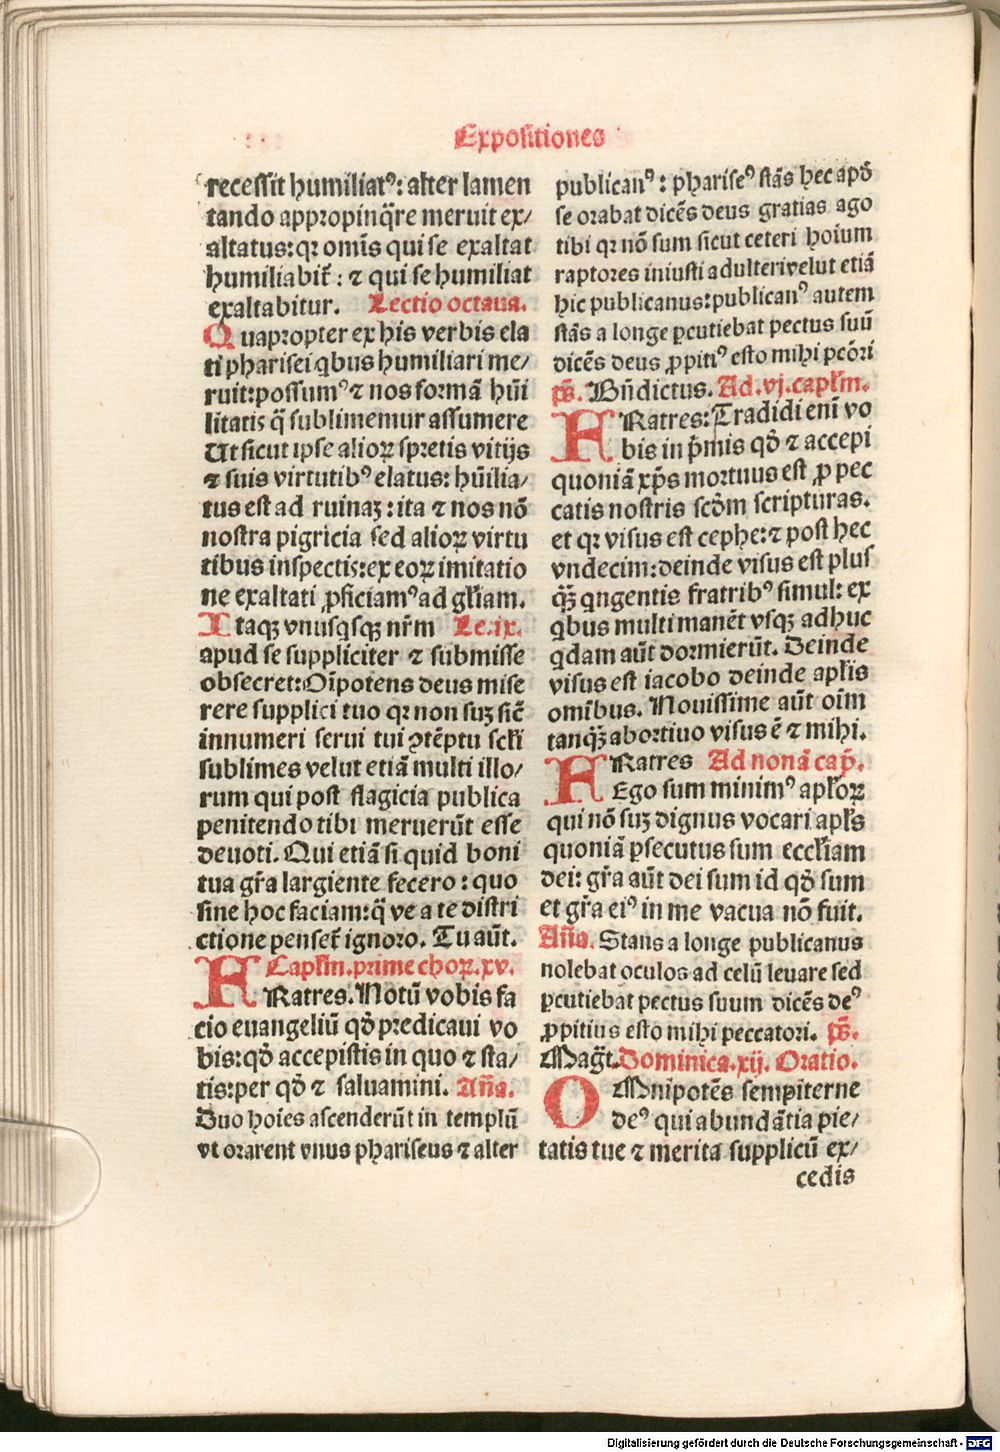 Expositiones
recessit humiliatꝰ: alter lamen
tando appropinq̄re meruit ex/
altatus: qꝛ om̄is qui se exaltat
humiliabit᷑: ⁊ qui se humiliat
exaltabitur. Lectio octaua.
Quapropter ex his verbis ela
ti pharisei qͥbus humiliari me/
ruit: possumꝰ ⁊ nos formā hūi
litatis q̄ sublimemur assumere
Ut sicut ipse alioꝝ spretis vitijs
⁊ suis virtutibꝰ elatus: hūilia/
tus est ad ruinaꝫ: ita ⁊ nos nō
nostra pigricia sed alioꝝ virtu
tibus inspectis: ex eoꝝ imitatio
ne exaltati ꝓficiamꝰ ad gl̄iam.
Itaqꝫ vnusqͥsqꝫ nr̄m Le.ix.
apud se suppliciter ⁊ submisse
obsecret: Oīpotens deus mise
rere supplici tuo qꝛ non suꝫ sic̄
innumeri serui tui ꝯtēptu sc̄li
sublimes velut etiā multi illo/
rum qui post flagicia publica
penitendo tibi meruerūt esse
deuoti. Qui etiā si quid boni
tua gr̄a largiente fecero: quo
fine hoc faciam: q̄ ve a te distri
ctione penset᷑ ignoro. Tu aūt.
Capl̄m. prime choꝝ. xv.
FRatres. Notū vobis fa
cio euangeliū qd̄ predicaui vo
bis: qd̄ accepistis in quo ⁊ sta/
tis: per qd̄ ⁊ saluamini. Añа.
Duo hoīes ascenderūt in templū
vt orarent vnus phariseus ⁊ alter
publicanꝰ: phariseꝰ stās hec apd̄
se orabat dicēs deus gratias ago
tibi qꝛ nō sum sicut ceteri hoīum
raptores iniusti adulteri velut etiā
hic publicanus: publicanꝰ autem
stās a longe ꝑcutiebat pectus suū
dicēs deus ꝓpitiꝰ esto mihi pc̄ori
ps̄. Bn̄dictus. Ad. vj. capl̄m.
FRatres: Tradidi enī vo
bis in p̄mis qd̄ ⁊ accepi
quoniā xp̄s mortuus est ꝓ pec
catis nostris scd̄m scripturas.
et qꝛ visus est cephe: ⁊ post hec
vndecim: deinde visus est plus
qꝫ̄ qͥngentis fratribꝰ simul: ex
qͥbus multi manēt vsqꝫ adhuc
qͥdam aūt dormierūt. Deinde
visus est iacobo deinde apl̄is
omībus. Nouissime aūt oīm
tanqꝫ̄ abortiuo visus ē ⁊ mihi.
FRatres Ad nonā cap̄.
Ego sum minimꝰ apl̄oꝝ
qui nō suꝫ dignus vocari apl̄s
quoniā ꝑsecutus sum eccl̄iam
dei: gr̄a aūt dei sum id qd̄ sum
et gr̄a eiꝰ in me vacua nō fuit.
Añа. Stans a longe publicanus
nolebat oculos ad celū leuare sed
ꝑcutiebat pectus suum dicēs deꝰ
ꝓpitius esto mihi peccatori. ps̄.
Mag̅t. Dominica. xij. Oratio.
OMnipotēs sempiterne
deꝰ qui abundātia pie/
tatis tue ⁊ merita supplicū ex/
cedis
Digitalisierung gefördert durch die Deutsche Forschungsgemeinschaft - DFG